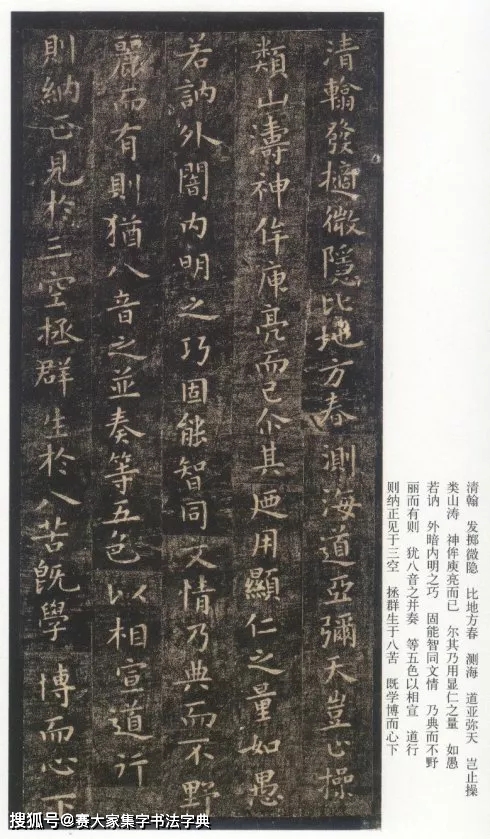 清翰發擿微隱比地方春測海道亞彌天豈止操
類山濤神侔庾亮而已尒其廼用顯仁之量如愚
若訥外闇内明之巧固能智同文情乃典而不野
麗而有則猶八音之並奏等五色以相宣道行
則納正見於三空拯群生於八苦既學博而心下
清翰 发擿微隐 比地方春 测海 道亚弥天 岂止操
类山涛 神侔庾亮而已 尔其乃用显仁之量 如愚
若讷 外暗内明之巧 固能智同文情 乃典而不野
丽而有则 犹八音之并奏 等五色以相宣 道行
则纳正见于三空 拯群生于八苦 既学博而心下
搜狐号@赛大家集字书法字典